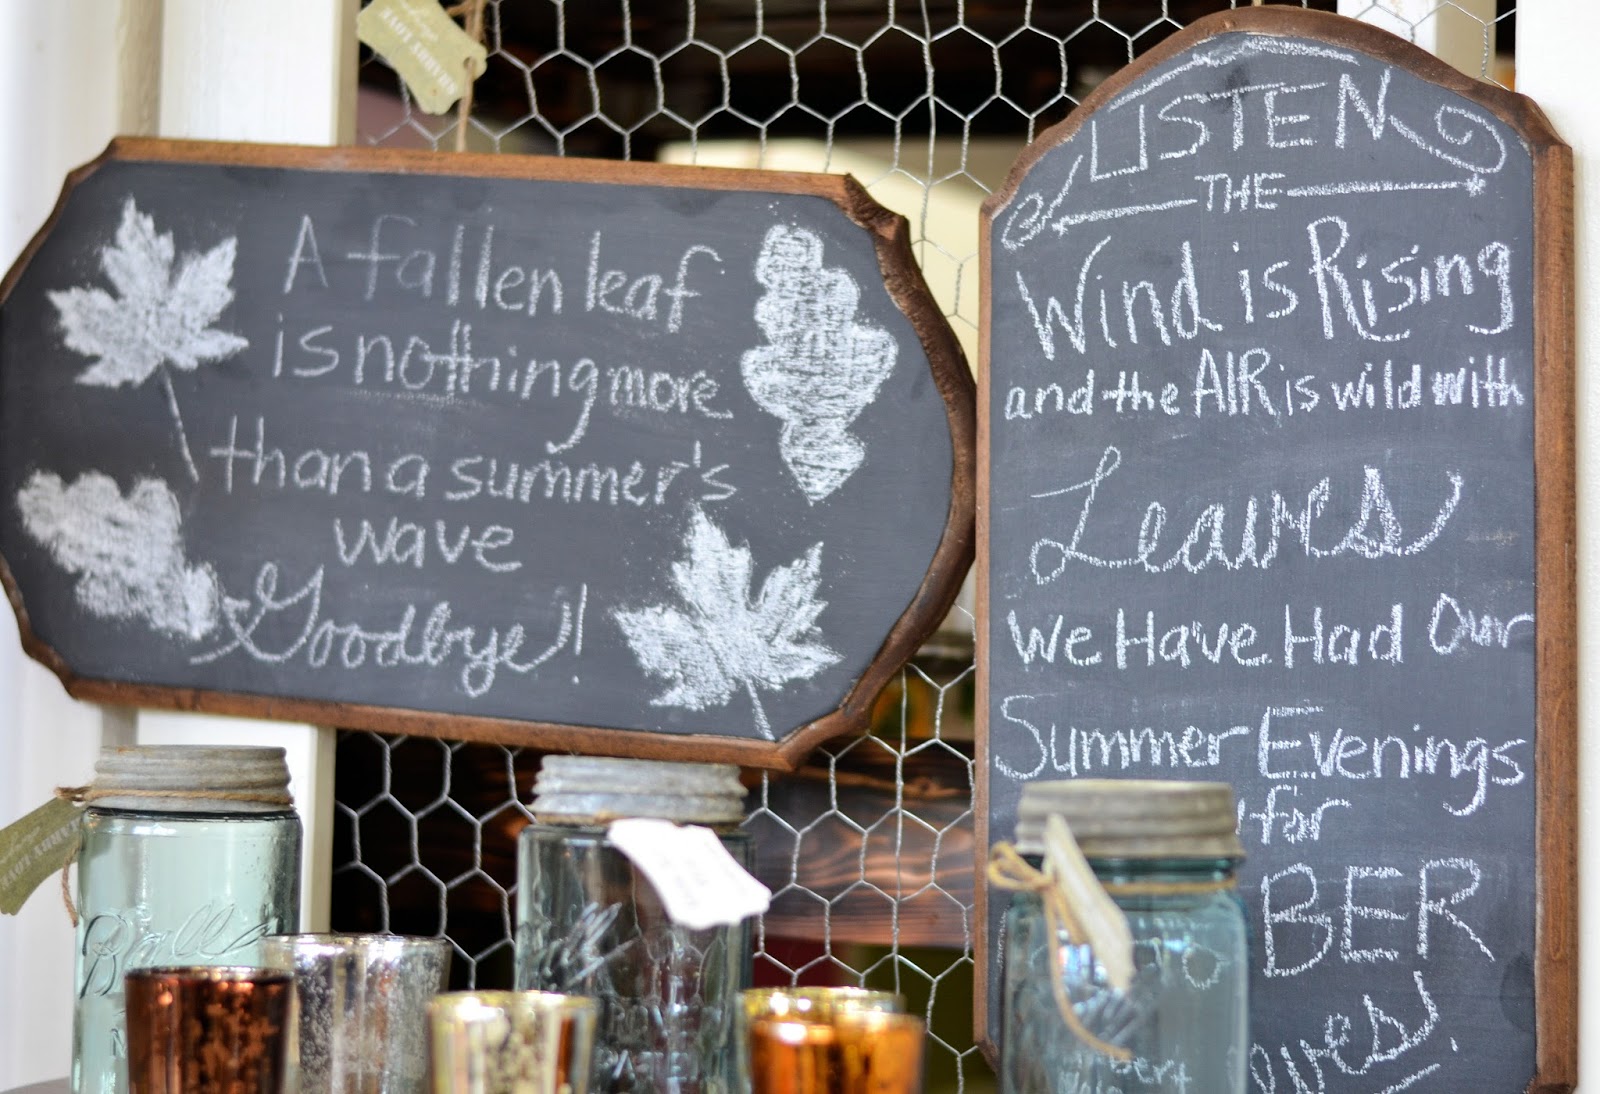 A fallen leaf
is nothing more
than a summer's
wave
Goodbye!
LISTEN
THE
Wind is Rising
and the AIR is wild with
Leaves
We Have Had Our
Summer Evenings
for
BER
Ball